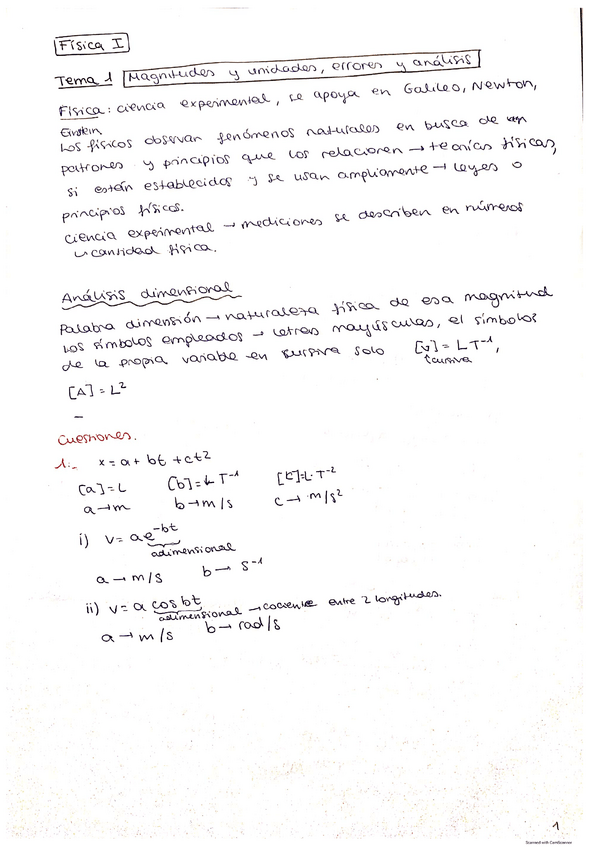 Física I
Tema 1 Magnitudes y unidades, errores y análisis
Física: ciencia experimental, se apoya en Galileo, Newton,
Einstein
Los físicos observan fenómenos naturales en busca de
patrones y principios que los relacionen → teorías físicas,
si están establecidos y se usan ampliamente → leyes o
principios físicos.
ciencia experimental → mediciones se describen en números
↳ cantidad física.
Análisis dimensional
Palabra dimensión → naturaleza física de esa magnitud
Los símbolos empleados → letras mayúsculas, el símbolos
de la propia variable en cursiva solo [v] = L T⁻¹,
↑cursiva
[A] = L²
–
Cuestiones.
1.- x = a + bt + ct²
[a] = L [b] = L T⁻¹ [c] = L · T⁻²
a → m b → m/s c → m/s²
i) v = a e^-bt
adimensional
a → m/s b → s⁻¹
ii) v = a cos bt
adimensional → cociente entre 2 longitudes.
a → m/s b → rad/s
1
Scanned with CamScanner